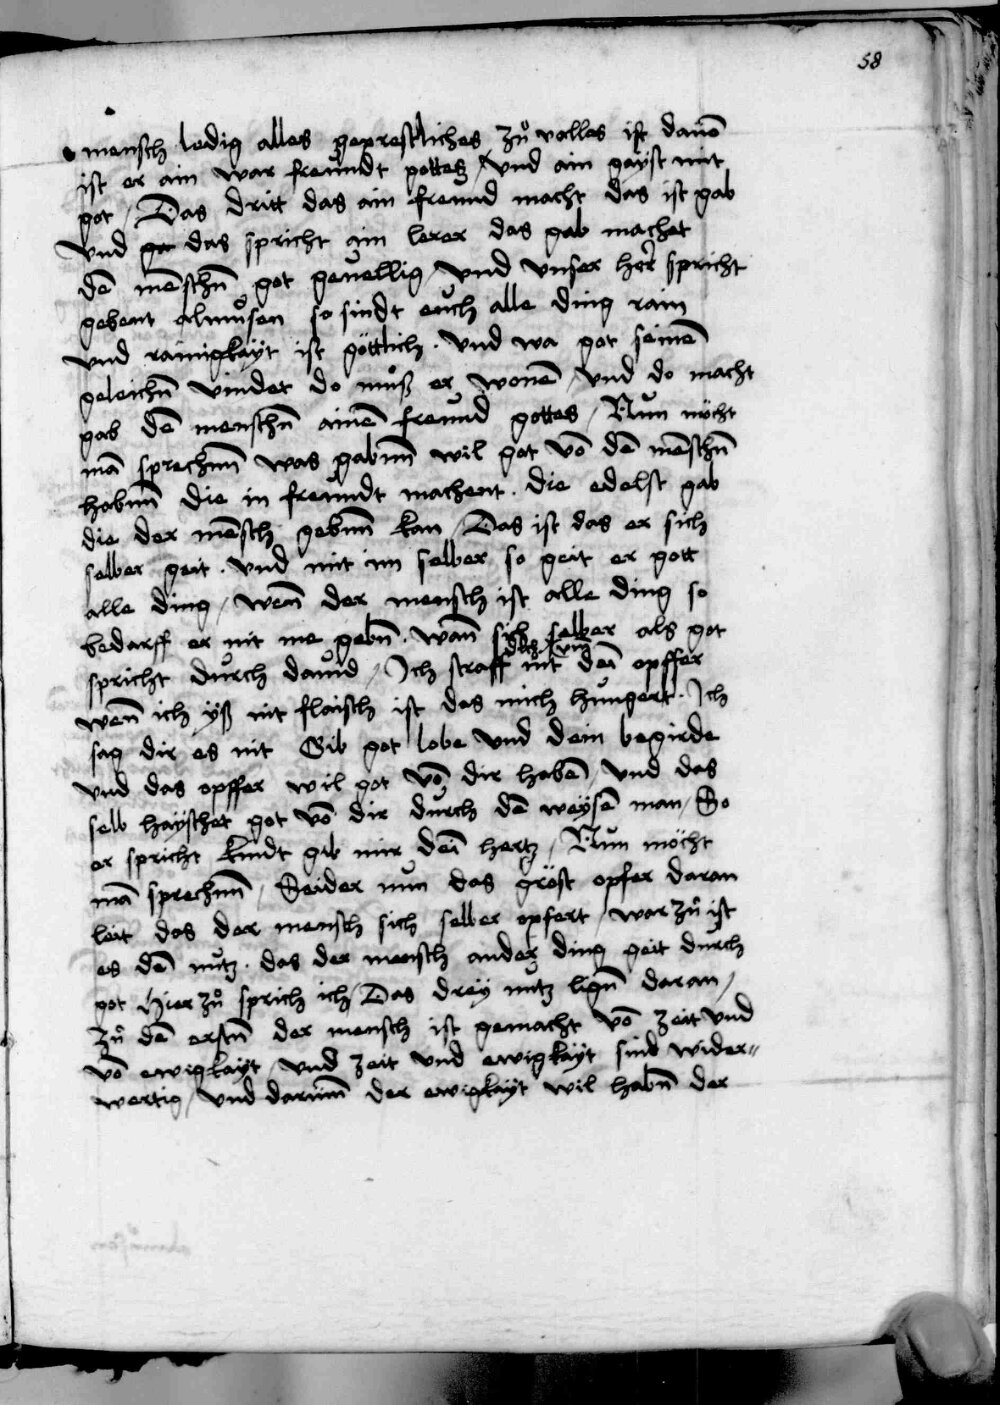 58
mensch ledig alles geprestliches zuͦ volles ist dauō
ist er ain war freundt gottes / vnd ain gayst mit
got / Das dritt das ain freund macht das ist gab
vnd ga das spricht ain lerer das gab machet
dē mēschn̄ got geuellig / vnd vnser her spricht
gebent almuͦsen so sindt euch alle ding rain
vnd rainigkayt ist göttlich . vnd wa got seinē
geleichn̄ vindet do muͦß er wonē / vnd do macht
gab dē menschn̄ ainē freund gottes / Nun möcht
mā sprechn̄ was gabnn̄ wil got vō dē mēschn̄
habnn̄ die in freundt machent . die edelst gab
die der mēsch gebnn̄ kan / Das ist das er sich
selber geit . vnd mit im selber so geit er gott
alle ding / wen̄ der mensch ist alle ding so
bedarff er nit me gebn̄ . wan̄ sich selber als got
spricht durch dauid / Ich straff nit dei opffer
wen̄ ich yß nit flaisch ist das mich hungert . Ich
sag dir es nit Gib got lobe vnd dein begirde
vnd das opffer wil got vō dir habē / vnd das
selb hayschet got vō dir durch dē weysē man / So
er spricht kindt gib mir dei hertz / Nun möcht
mā sprechnn̄ / Seider nun das gröst opfer daran
leit das der mensch sich selber opfert / war zuͦ ist
es dē nutz . das der mensch ander ding geit durch
got Hier zuͦ sprich ich / Das drey nutz lign̄ daran /
Zuͦ dē erstn̄ der mensch ist gemacht vō zeit vnd
vō ewigkayt / vnd zeit vnd ewigkayt sind wider〃
wertig / vnd darum̄ der ewigkayt wil habn̄ der